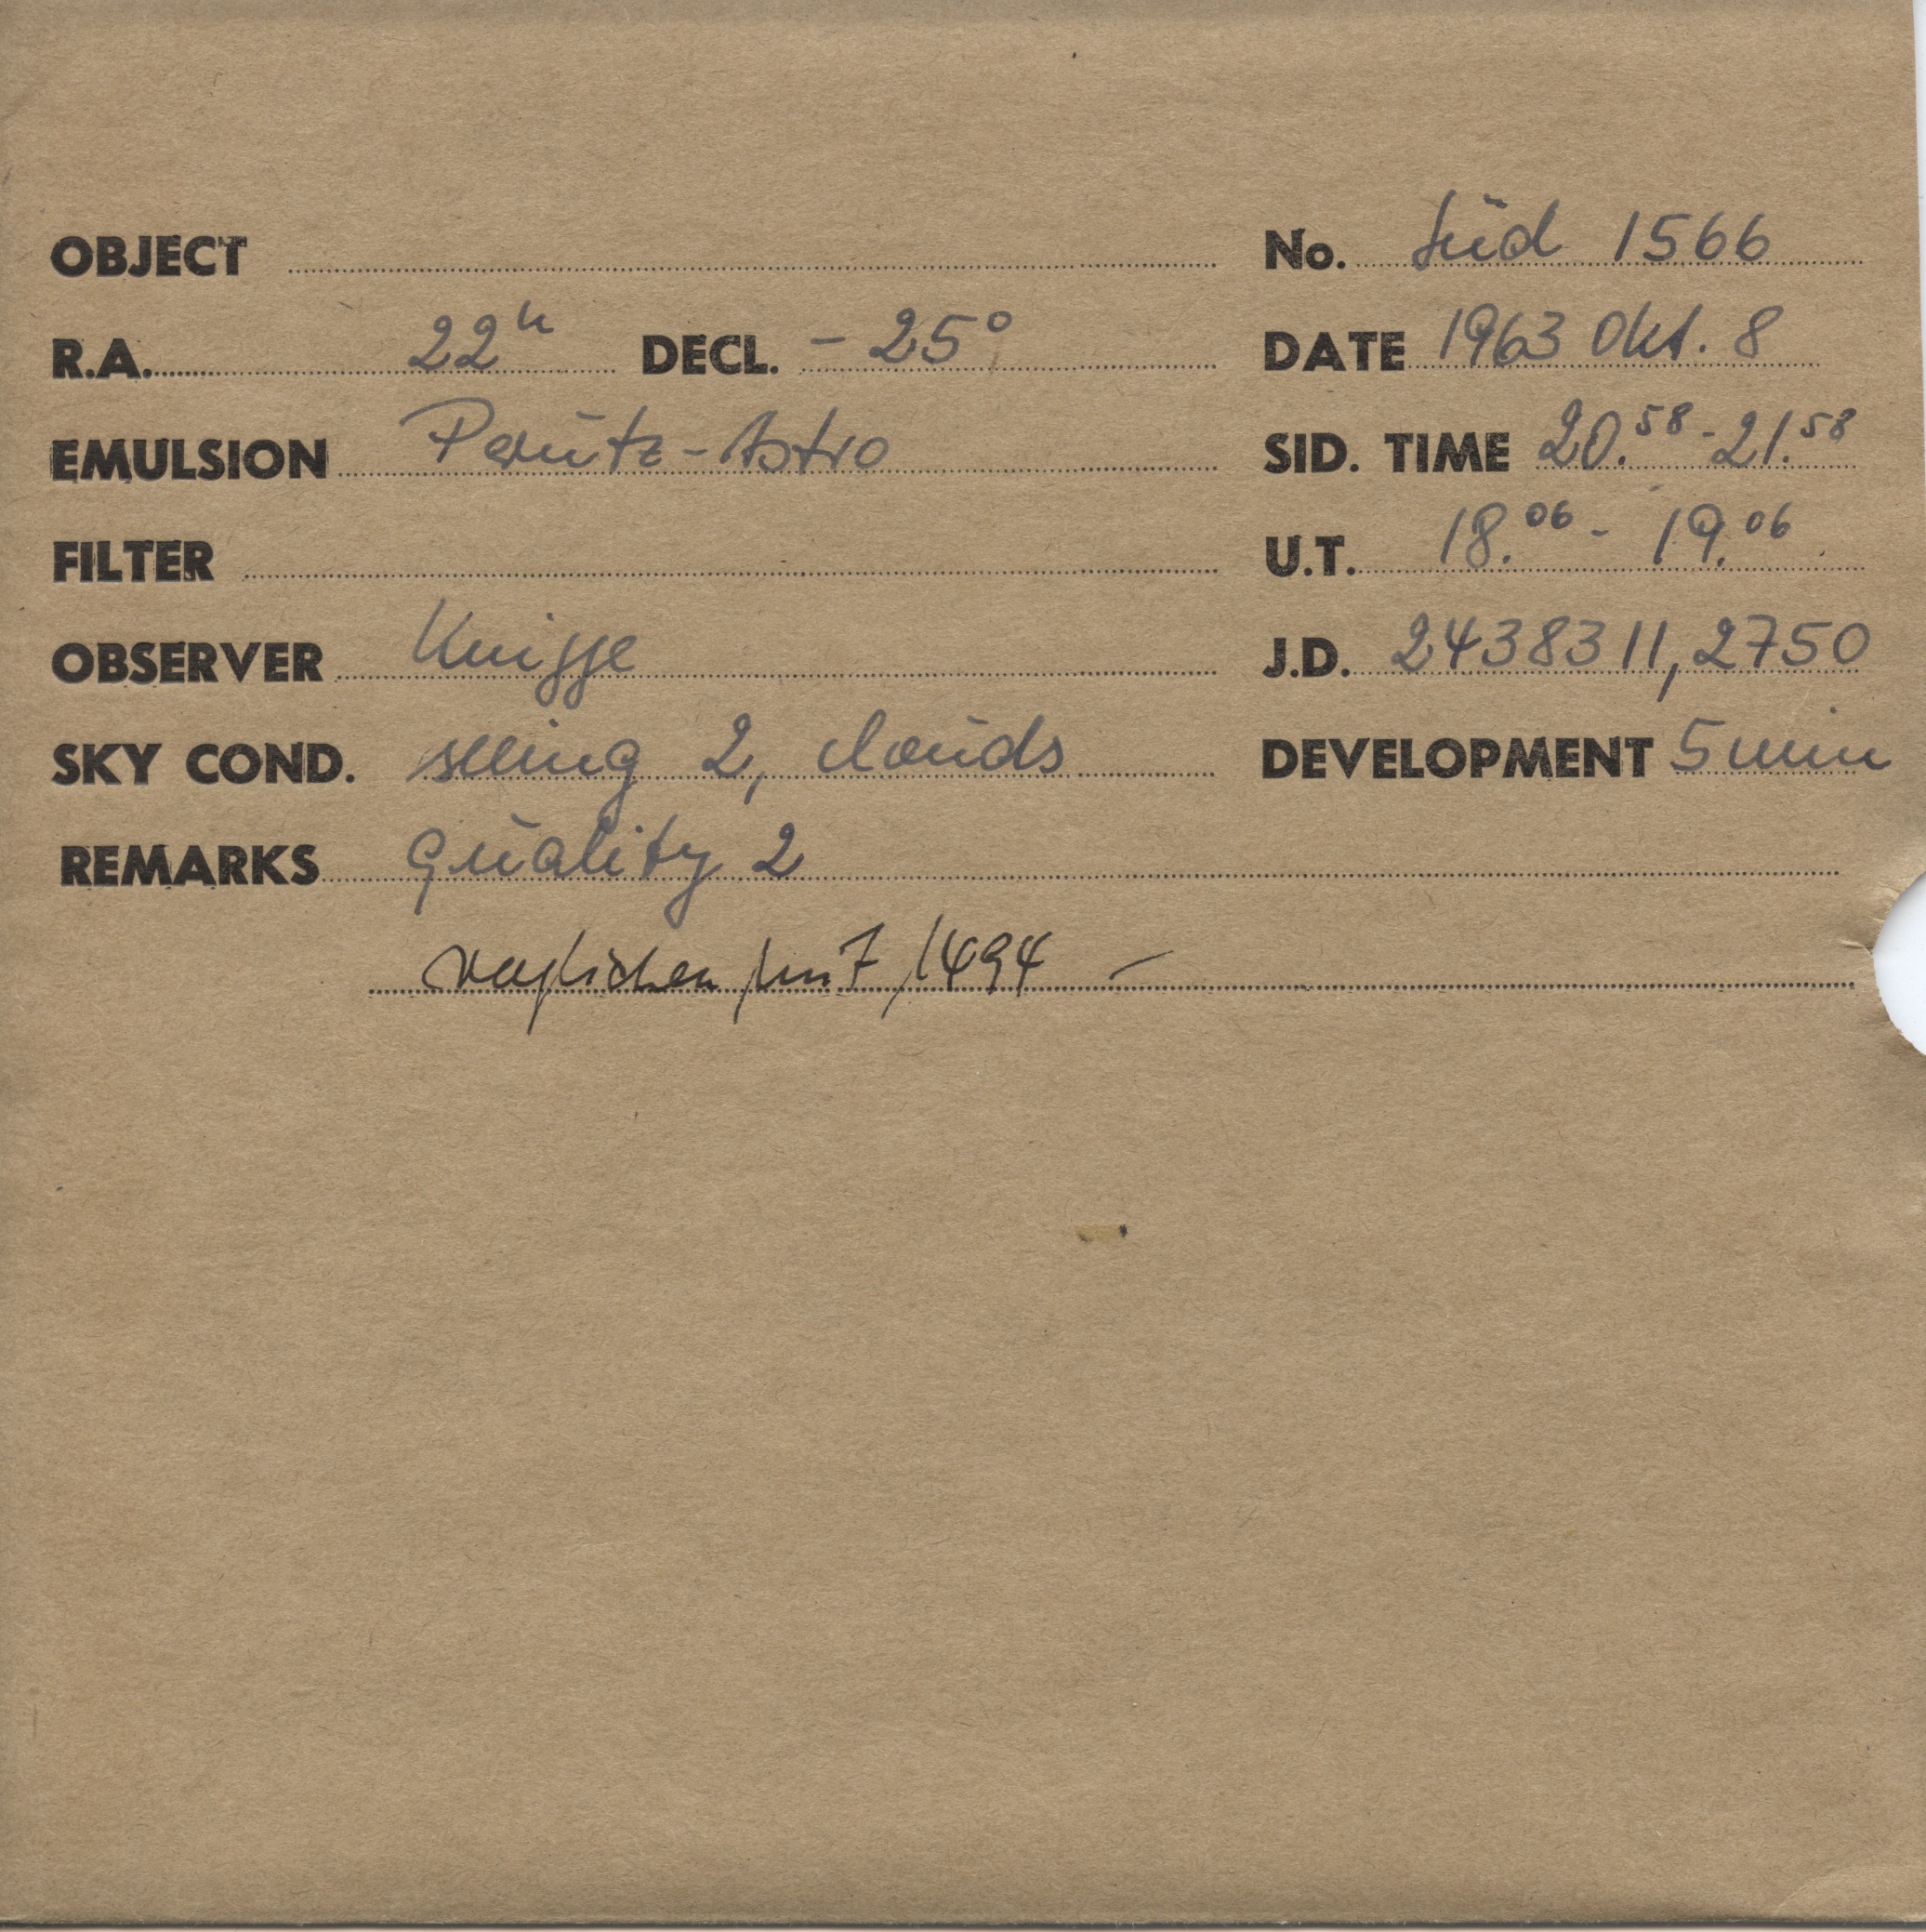 OBJECT
No. Süd 1566
R.A. 22h DECL. - 25°
DATE 1963 Okt. 8
EMULSION Perutz-Astro
SID. TIME 20.58 - 21.58
FILTER
U.T. 18.06 - 19.06
OBSERVER Knigge
J.D. 2438311,2750
SKY COND. seeing 2, clouds
DEVELOPMENT 5 min
REMARKS quality 2
verglichen mit 1494 –